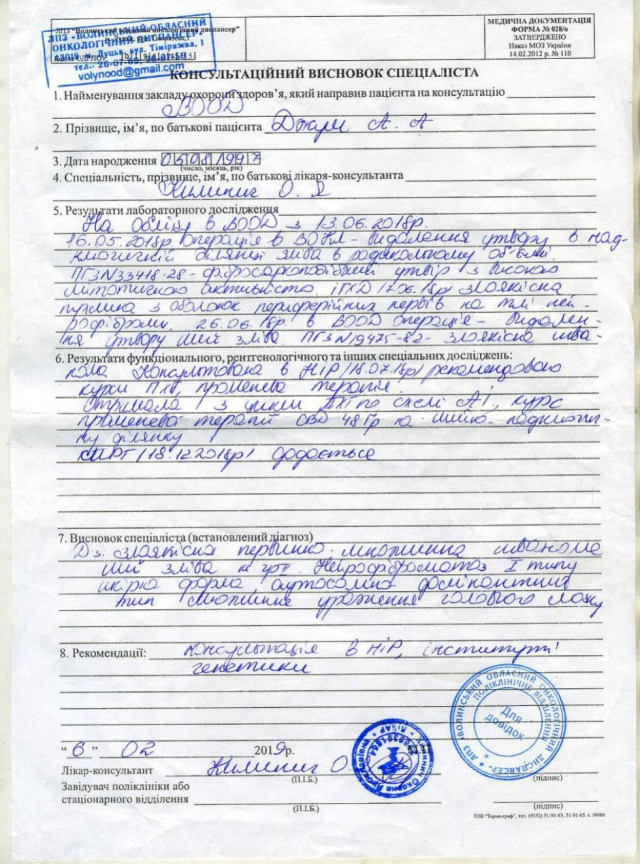 ЛПЗ "ВОЛИНСЬКИЙ ОБЛАСНИЙ
ОНКОЛОГІЧНИЙ ДИСПАНСЕР"
43018, м. Луцьк, вул. Тімірязєва, 1
volynood@gmail.com
МЕДИЧНА ДОКУМЕНТАЦІЯ
ФОРМА № 028/о
ЗАТВЕРДЖЕНО
Наказ МОЗ України
14.02.2012 р. № 110
КОНСУЛЬТАЦІЙНИЙ ВИСНОВОК СПЕЦІАЛІСТА
1. Найменування закладу охорони здоров'я, який направив пацієнта на консультацію
ВООД
2. Прізвище, ім'я, по батькові пацієнта А. А
3. Дата народження
(число, місяць, рік)
4. Спеціальність, прізвище, ім'я, по батькові лікаря-консультанта
О. Я
5. Результати лабораторного дослідження
На обліку в ВООД з 13.06.2018р.
16.05.2018р Операція в ВОКЛ - видалення утвору в над-
ключичній ділянці зліва в радикальному об'ємі.
ПГЗ N33418-28 - фібросаркоподібний утвір з високою
мітотичною активністю ІГХД 17.06.18р злоякісна
пухлина з оболонок периферійних нервів на тлі ней-
рофіброми. 26.06.18р в ВООД операція - видален-
ня утвору шиї зліва ПГЗ N19475-82 - злоякісна шва-
6. Результати функціонального, рентгенологічного та інших спеціальних досліджень:
нома Консультована в НІР /18.07.18р/ рекомендовано
курси ПХТ променева терапія.
Отримала 3 цикли ПХТ по схемі АІ, курс
променевої терапії СВД 48 Гр на шийно-надключич-
ну ділянку
МРТ /18.12.2018р/ додається
7. Висновок спеціаліста (встановлений діагноз)
Дз: злоякісна первинно-множинна шванома
шиї зліва на грт. Нейрофіброматоз І типу
шкірна форма, аутосомно домінантний
тип множинне ураження головного мозку
8. Рекомендації: консультація в НІР, інституті
генетики
" 6 " 02 2019р.
Лікар-консультант О
(П.І.Б.)
(підпис)
Завідувач поліклініки або
стаціонарного відділення
(П.І.Б.)
(підпис)
ЛПЗ «ВОЛИНСЬКИЙ ОБЛАСНИЙ ОНКОЛОГІЧНИЙ ДИСПАНСЕР»
ПОЛІКЛІНІЧНЕ ВІДДІЛЕННЯ
Для
довідок
ЛІКАР